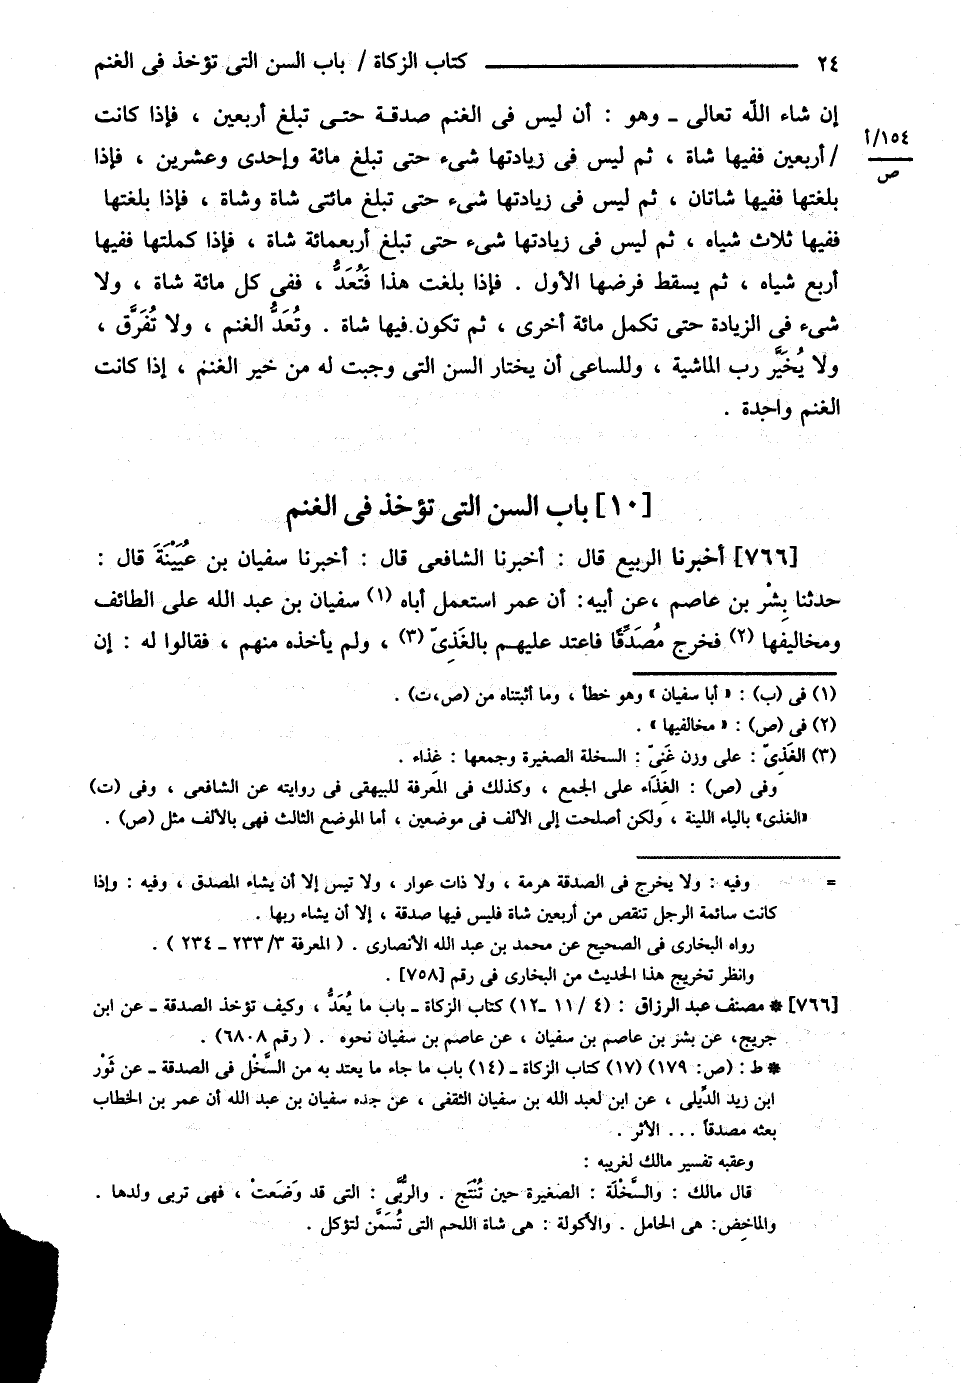 ٢٤ ــــــــــــــــ كتاب الزكاة / باب السن التى تؤخذ فى الغنم
إن شاء اللّه تعالى ـ وهو : أن ليس فى الغنم صدقة حتـى تبلغ أربعين ، فإذا كانت
١٥٤/أ
ص
/ أربعين ففيها شاة ، ثم ليس فى زيادتها شىء حتى تبلغ مائة وإحدى وعشرين ، فإذا
بلغتها ففيها شاتان ، ثم ليس فى زيادتها شىء حتى تبلغ مائتى شاة وشاة ، فإذا بلغتها
ففيها ثلاث شياه ، ثم ليس فى زيادتها شىء حتى تبلغ أربعمائة شاة ، فإذا كملتها ففيها
أربع شياه ، ثم يسقط فرضها الأول . فإذا بلغت هذا فَتُعَدُّ ، ففى كل مائة شاة ، ولا
شىء فى الزيادة حتى تكمل مائة أخرى ، ثم تكون فيها شاة . وتُعَدُّ الغنم ، ولا تُفَرَّق ،
ولا يُخَيَّر رب الماشية ، وللساعى أن يختار السن التى وجبت له من خير الغنم ، إذا كانت
الغنم واحدة .
[١٠] باب السن التى تؤخذ فى الغنم
[٧٦٦] أخبرنا الربيع قال : أخبرنا الشافعى قال : أخبرنا سفيان بن عُيَيْنَةَ قال :
حدثنا بِشْر بن عاصم ،عن أبيه: أن عمر استعمل أباه (١) سفيان بن عبد الله على الطائف
ومخاليفها (٢) فخرج مُصَدِّقًا فاعتد عليهـم بالغَذِىّ (٣) ، ولم يأخذه منهم ، فقالوا له : إن
(١) فى (ب) : « أبا سفيان » وهو خطأ ، وما أثبتناه من (ص،ت) .
(٢) فى (ص) : « مخالفيها » .
(٣) الغَذِىّ : على وزن غَنِىّ : السخلة الصغيرة وجمعها : غِذاء .
وفى (ص) : الغِذَاء على الجمع ، وكذلك فى المعرفة للبيهقى فى روايته عن الشافعى ، وفى (ت)
«الغذى» بالياء اللينة ، ولكن أصلحت إلى الألف فى موضعين ، أما الموضع الثالث فهى بالألف مثل (ص) .
= وفيه : ولا يخرج فى الصدقة هرمة ، ولا ذات عوار ، ولا تيس إلا أن يشاء المصدق ، وفيه : وإذا
كانت سائمة الرجل تنقص من أربعين شاة فليس فيها صدقة ، إلا أن يشاء ربها .
رواه البخارى فى الصحيح عن محمد بن عبد الله الأنصارى . ( المعرفة ٣/ ٢٣٣ ـ ٢٣٤ ) .
وانظر تخريج هذا الحديث من البخارى فى رقم [٧٥٨] .
[٧٦٦] * مصنف عبد الرزاق : (٤ / ١١ ـ ١٢) كتاب الزكاة ـ باب ما يُعَدُّ ، وكيف تؤخذ الصدقة ـ عن ابن
جريج، عن بشر بن عاصم بن سفيان ، عن عاصم بن سفيان نحوه . ( رقم ٦٨٠٨) .
* ط : (ص: ١٧٩) (١٧) كتاب الزكاة ـ (١٤) باب ما جاء ما يعتد به من السَّخْل فى الصدقة ـ عن ثَوْر
ابن زيد الدِّيلى ، عن ابن لعبد الله بن سفيان الثقفى ، عن جده سفيان بن عبد الله أن عمر بن الخطاب
بعثه مصدقاً ... الأثر .
وعقبه تفسير مالك لغريبه :
قال مالك : والسَّخْلَة : الصغيرة حين تُنْتَج . والرُّبَّى : التى قد وَضَعَتْ ، فهى تربى ولدها .
والماخِض: هى الحامل . والأكولة : هى شاة اللحم التى تُسَمَّن لتؤكل .